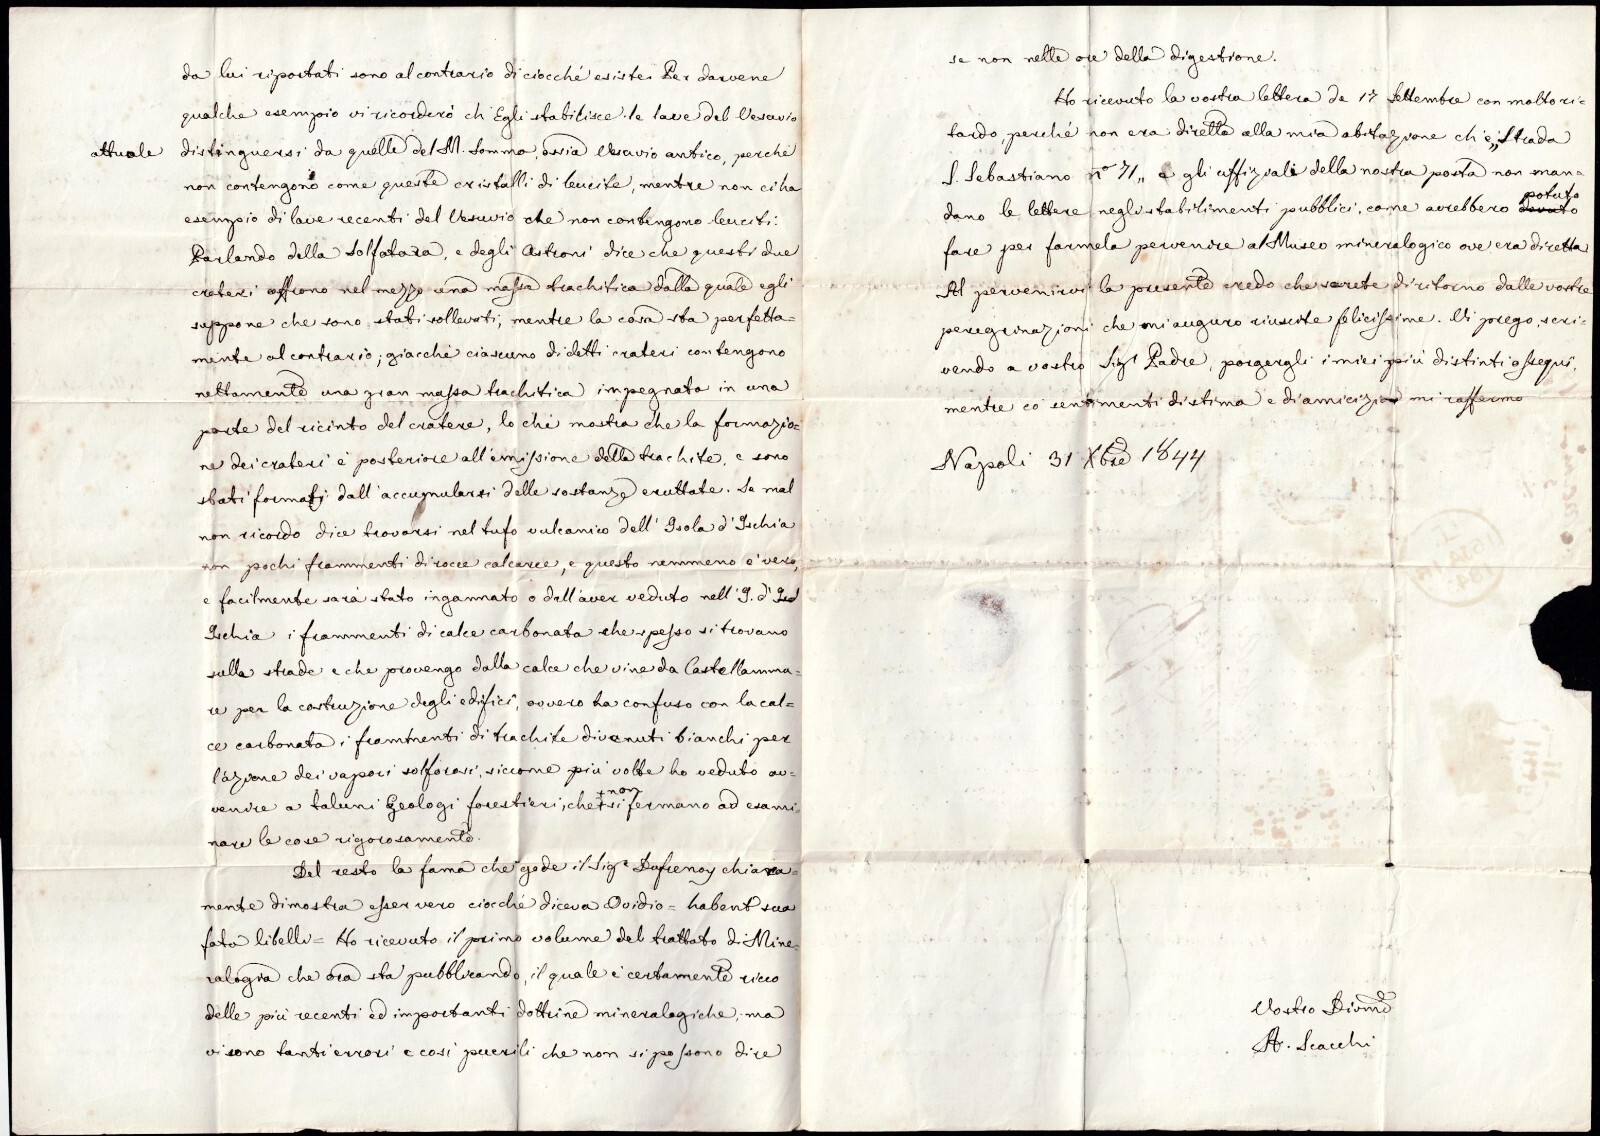 da lui riportati sono al contrario di ciocché esiste. Per darvene
qualche esempio vi ricorderò ch'Egli stabilisce le lave del Vesuvio
attuale
distinguersi da quelle del M. Somma, ossia Vesuvio antico, perché
non contengono come queste cristalli di leucite, mentre non ci ha
esempio di lave recenti del Vesuvio che non contengono leuciti.
Parlando della Solfatara, e degli Astroni dice che questi due
crateri offrono nel mezzo una massa trachitica dalla quale egli
suppone che sono stati sollevati, mentre la cosa sta perfetta=
mente al contrario; giacché ciascuno di detti crateri contengono
nettamente una gran massa trachitica impegnata in una
parte del ricinto del cratere, lo che mostra che la formazio=
ne dei crateri è posteriore all'emissione della trachite, e sono
stati formati dall'accumularsi delle sostanze eruttate. Se mal
non ricordo dice trovarsi nel tufo vulcanico dell'Isola d'Ischia
non pochi frammenti di rocce calcaree, e questo nemmeno è vero,
e facilmente sarà stato ingannato o dall'aver veduto nell'I. d'
Ischia i frammenti di calce carbonata che spesso si trovano
sulla strade e che provengo dalla calce che vine da Castellamma=
re per la costruzione degli edifici, ovvero ha confuso con la cal=
ce carbonata i frammenti di trachite divenuti bianchi per
l'azione dei vapori solforosi, siccome più volte ho veduto av=
venire a taluni Geologi forestieri, che + si fermano ad esami=
+ non
nare le cose rigorosamente.
Del resto la fama che gode il Sigr Dufrenoy chiara=
mente dimostra esser vero ciocché diceva Ovidio = habent sua
fata libelli = Ho ricevuto il primo volume del trattato di Mine=
ralogia che ora sta pubblicando, il quale è certamente ricco
delle più recenti ed importanti dottrine mineralogiche, ma
vi sono tanti errori e così puerili che non si possono dire
se non nelle ore della digestione.
Ho ricevuto la vostra lettera de 17 Settembre con molto ri=
tardo, perché non era diretta alla mia abitazione ch'è „Strada
S. Sebastiano nº 71„ e gli uffiziali della nostra posta non man=
dano le lettere negli stabilimenti pubblici, come avrebbero dovuto
potuto
fare per farmela pervenire al Museo mineralogico ove era diretta.
Al pervenirvi la presente credo che sarete di ritorno dalle vostre
peregrinazioni che mi auguro riuscite felicissime. Vi prego, scri=
vendo a vostro Sigr Padre, porgergli i miei più distinti ossequi,
mentre co' sentimenti di stima e di amicizia mi raffermo
Napoli 31 Xbre 1844
Vostro Divmo
A. Scacchi